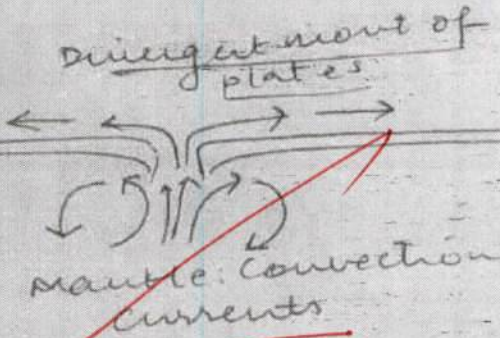 Divergent movt of
plates
Mantle: Convection
Currents